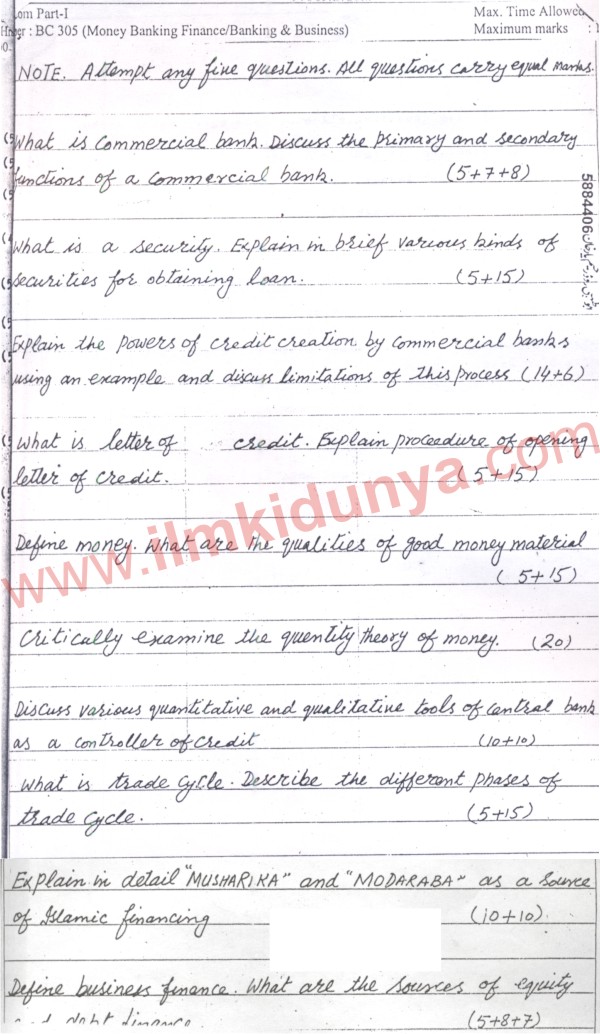 om Part-I Max. Time Allowed
: BC 305 (Money Banking Finance/Banking & Business) Maximum marks :
NOTE. Attempt any five questions. All questions carry equal marks.
What is commercial bank. Discuss the primary and secondary
functions of a commercial bank. (5+7+8)
What is a security. Explain in brief various kinds of
securities for obtaining loan. (5+15)
5884406
Explain the powers of credit creation by commercial banks
using an example and discuss limitations of this process (14+6)
What is letter of credit. Explain proceadure of opening
letter of credit. (5+15)
www.ilmkidunya.com
Define money. What are the qualities of good money material
(5+15)
Critically examine the quentity theory of money. (20)
Discuss various quantitative and qualitative tools of central bank
as a controller of credit (10+10)
What is trade cycle. Describe the different phases of
trade cycle. (5+15)
Explain in detail "MUSHARIKA" and "MODARABA" as a source
of Islamic financing (10+10)
Define business finance. What are the sources of equity
and debt finance. (5+8+7)